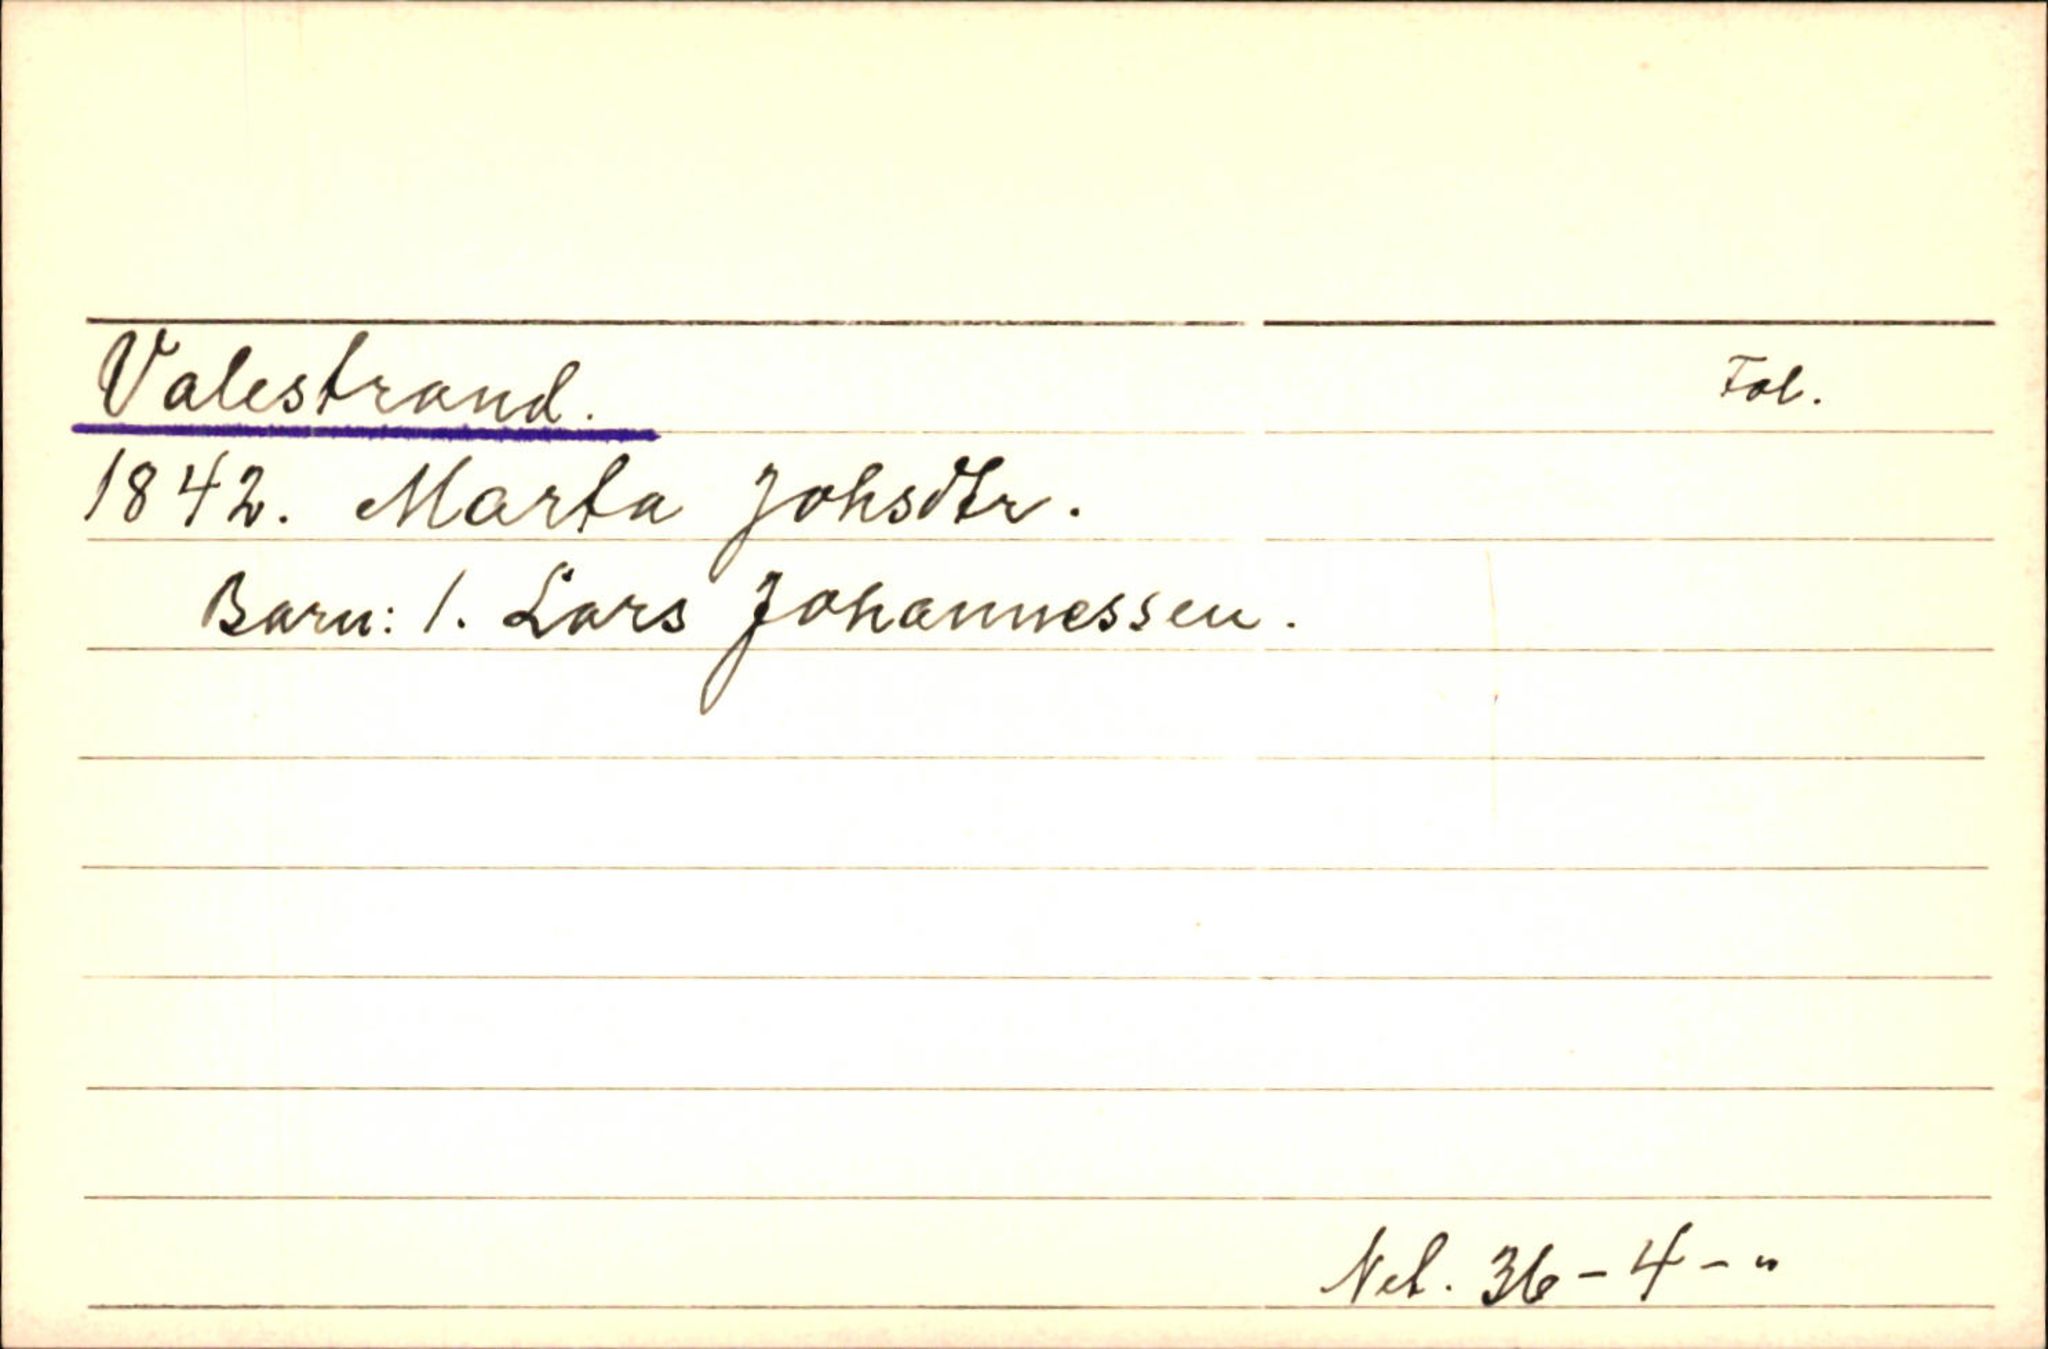 Valestrand. Fol.
1842. Marta Johsdtr.
Barn: 1. Lars Johannessen.
Net. 36-4-"